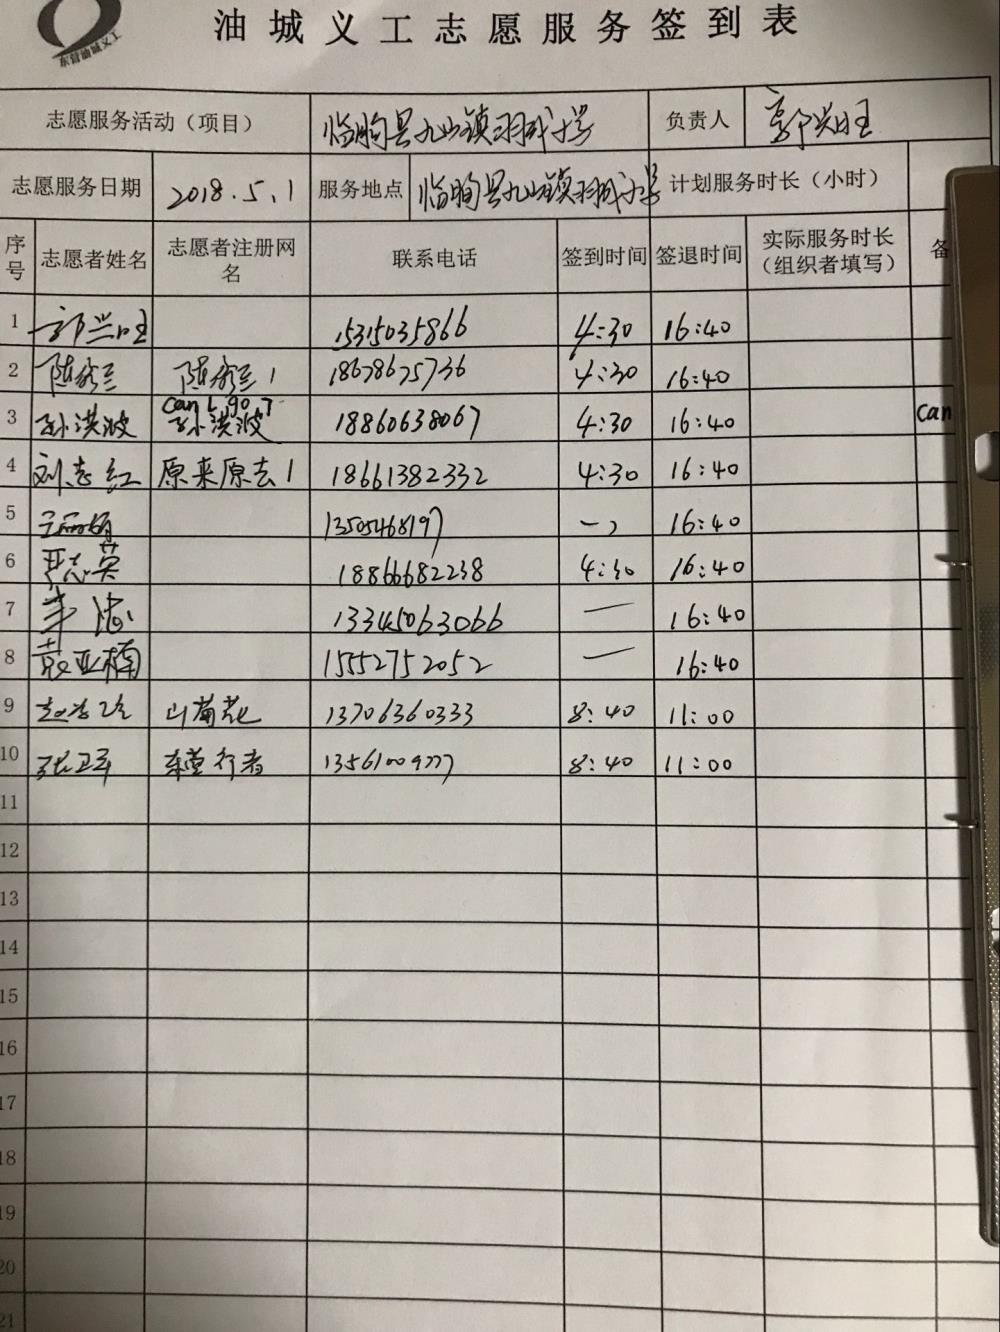 东营油城义工
油城义工志愿服务签到表
志愿服务活动（项目） 临朐县九山镇羽城小学 负责人 郭兴旺
志愿服务日期 2018.5.1 服务地点 临朐县九山镇羽城小学 计划服务时长（小时）
序号 志愿者姓名 志愿者注册网名 联系电话 签到时间 签退时间 实际服务时长（组织者填写） 备
1 郭兴旺 15315035866 4:30 16:40
2 陈秀兰 陈秀兰1 18678675736 4:30 16:40
can t go T
3 孙洪波 孙洪波 18860638067 4:30 16:40 can
4 刘志红 原来原去1 18661382332 4:30 16:40
5 王丽娟 13505468197 16:40
6 严志英 18866682238 4:30 16:40
7 13345063066 — 16:40
8 袁亚楠 15552752052 — 16:40
9 山菊花 13706360333 8:40 11:00
10 张卫军 东营行者 13561009777 8:40 11:00
11
12
13
14
15
16
17
18
19
20
21